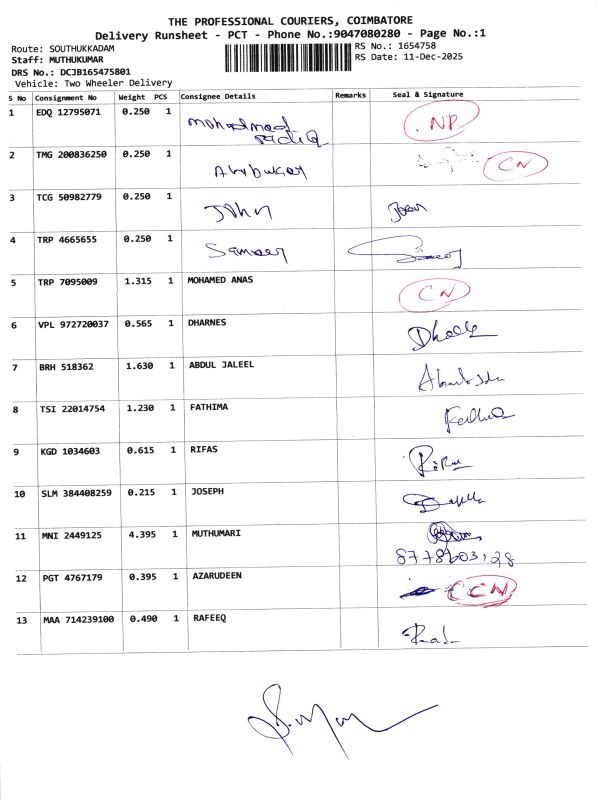 THE PROFESSIONAL COURIERS, COIMBATORE
Delivery Runsheet - PCT - Phone No.:9047080280 - Page No.:1
Route: SOUTHUKKADAM
Staff: MUTHUKUMAR
DRS No.: DCJB165475801
Vehicle: Two Wheeler Delivery
RS No.: 1654758
RS Date: 11-Dec-2025
S No Consignment No Weight PCS Consignee Details Remarks Seal & Signature
1 EDQ 12795071 0.250 1 Mohammed Sadiq NP
2 TMG 200836250 0.250 1 Abubucker CN
3 TCG 50982779 0.250 1 John
4 TRP 4665655 0.250 1 Sameer
5 TRP 7095009 1.315 1 MOHAMED ANAS CN
6 VPL 972720037 0.565 1 DHARNES
7 BRH 518362 1.630 1 ABDUL JALEEL
8 TSI 22014754 1.230 1 FATHIMA
9 KGD 1034603 0.615 1 RIFAS
10 SLM 384408259 0.215 1 JOSEPH
11 MNI 2449125 4.395 1 MUTHUMARI
12 PGT 4767179 0.395 1 AZARUDEEN CN
13 MAA 714239100 0.490 1 RAFEEQ